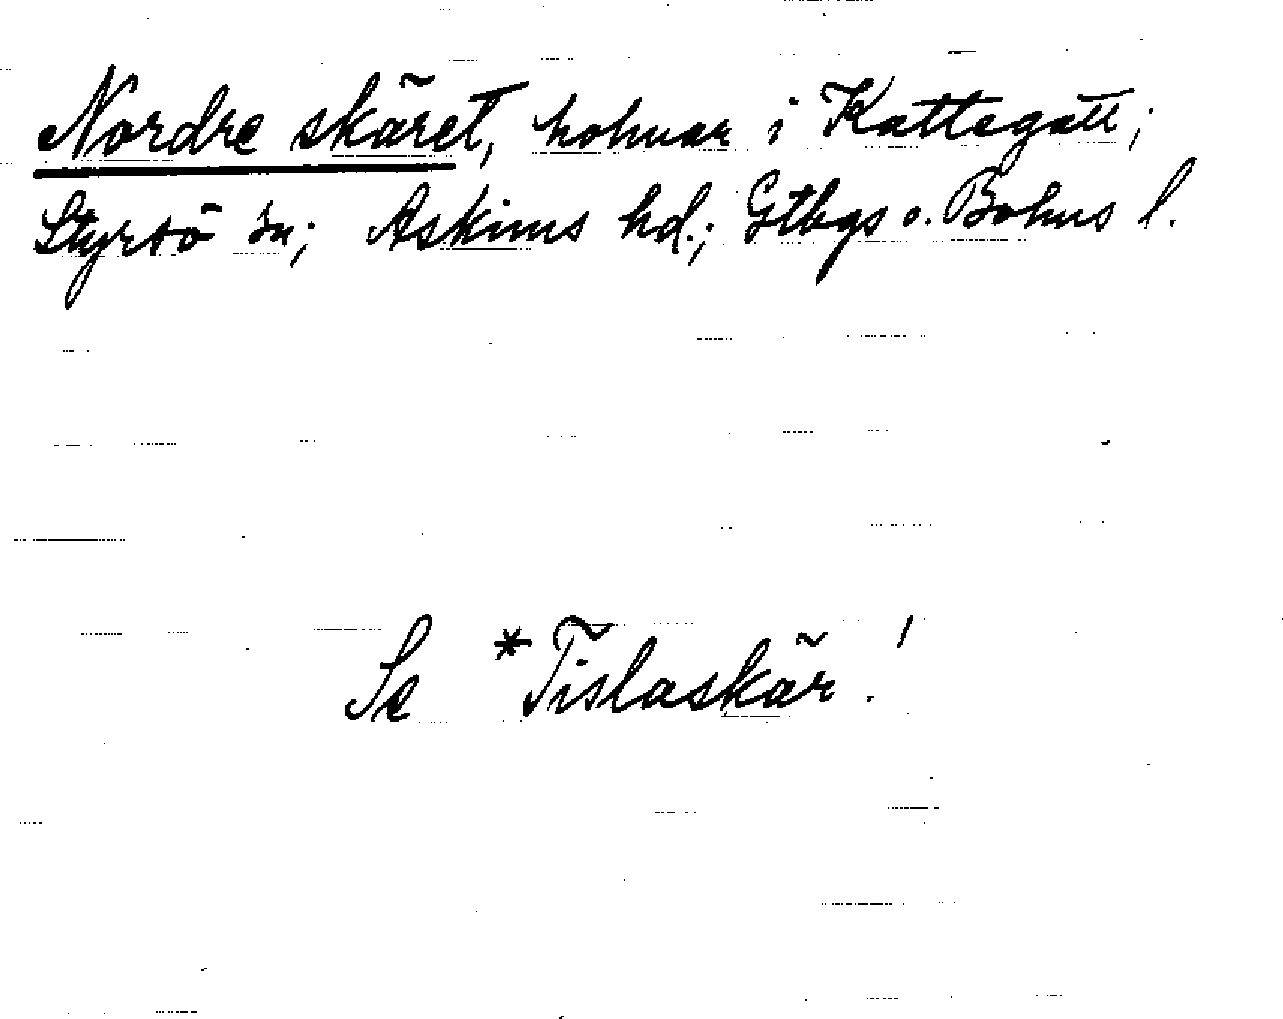 Nordre skäret, holmar i Kattegatt;
Styrsö sn; Askims hd.; Gtbgs o. Bohus l.
Se *Tislaskär!